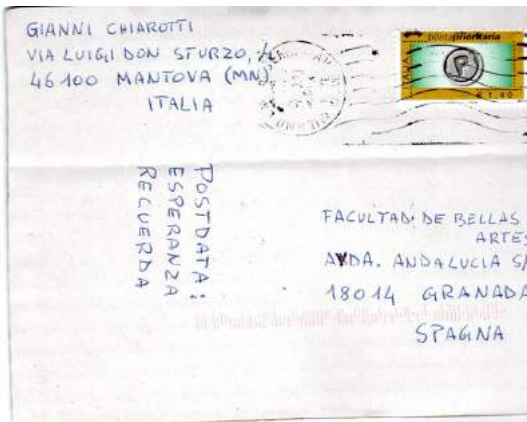 GIANNI CHIAROTTI
VIA LUIGI DON STURZO,
46100 MANTOVA (MN)
ITALIA
postaprioritaria
ITALIA
P
€ 1,40
MILANO
POSTDATA:
ESPERANZA
RECUERDA
FACULTAD DE BELLAS
ARTES
AVDA. ANDALUCIA S/
18014 GRANADA
SPAGNA